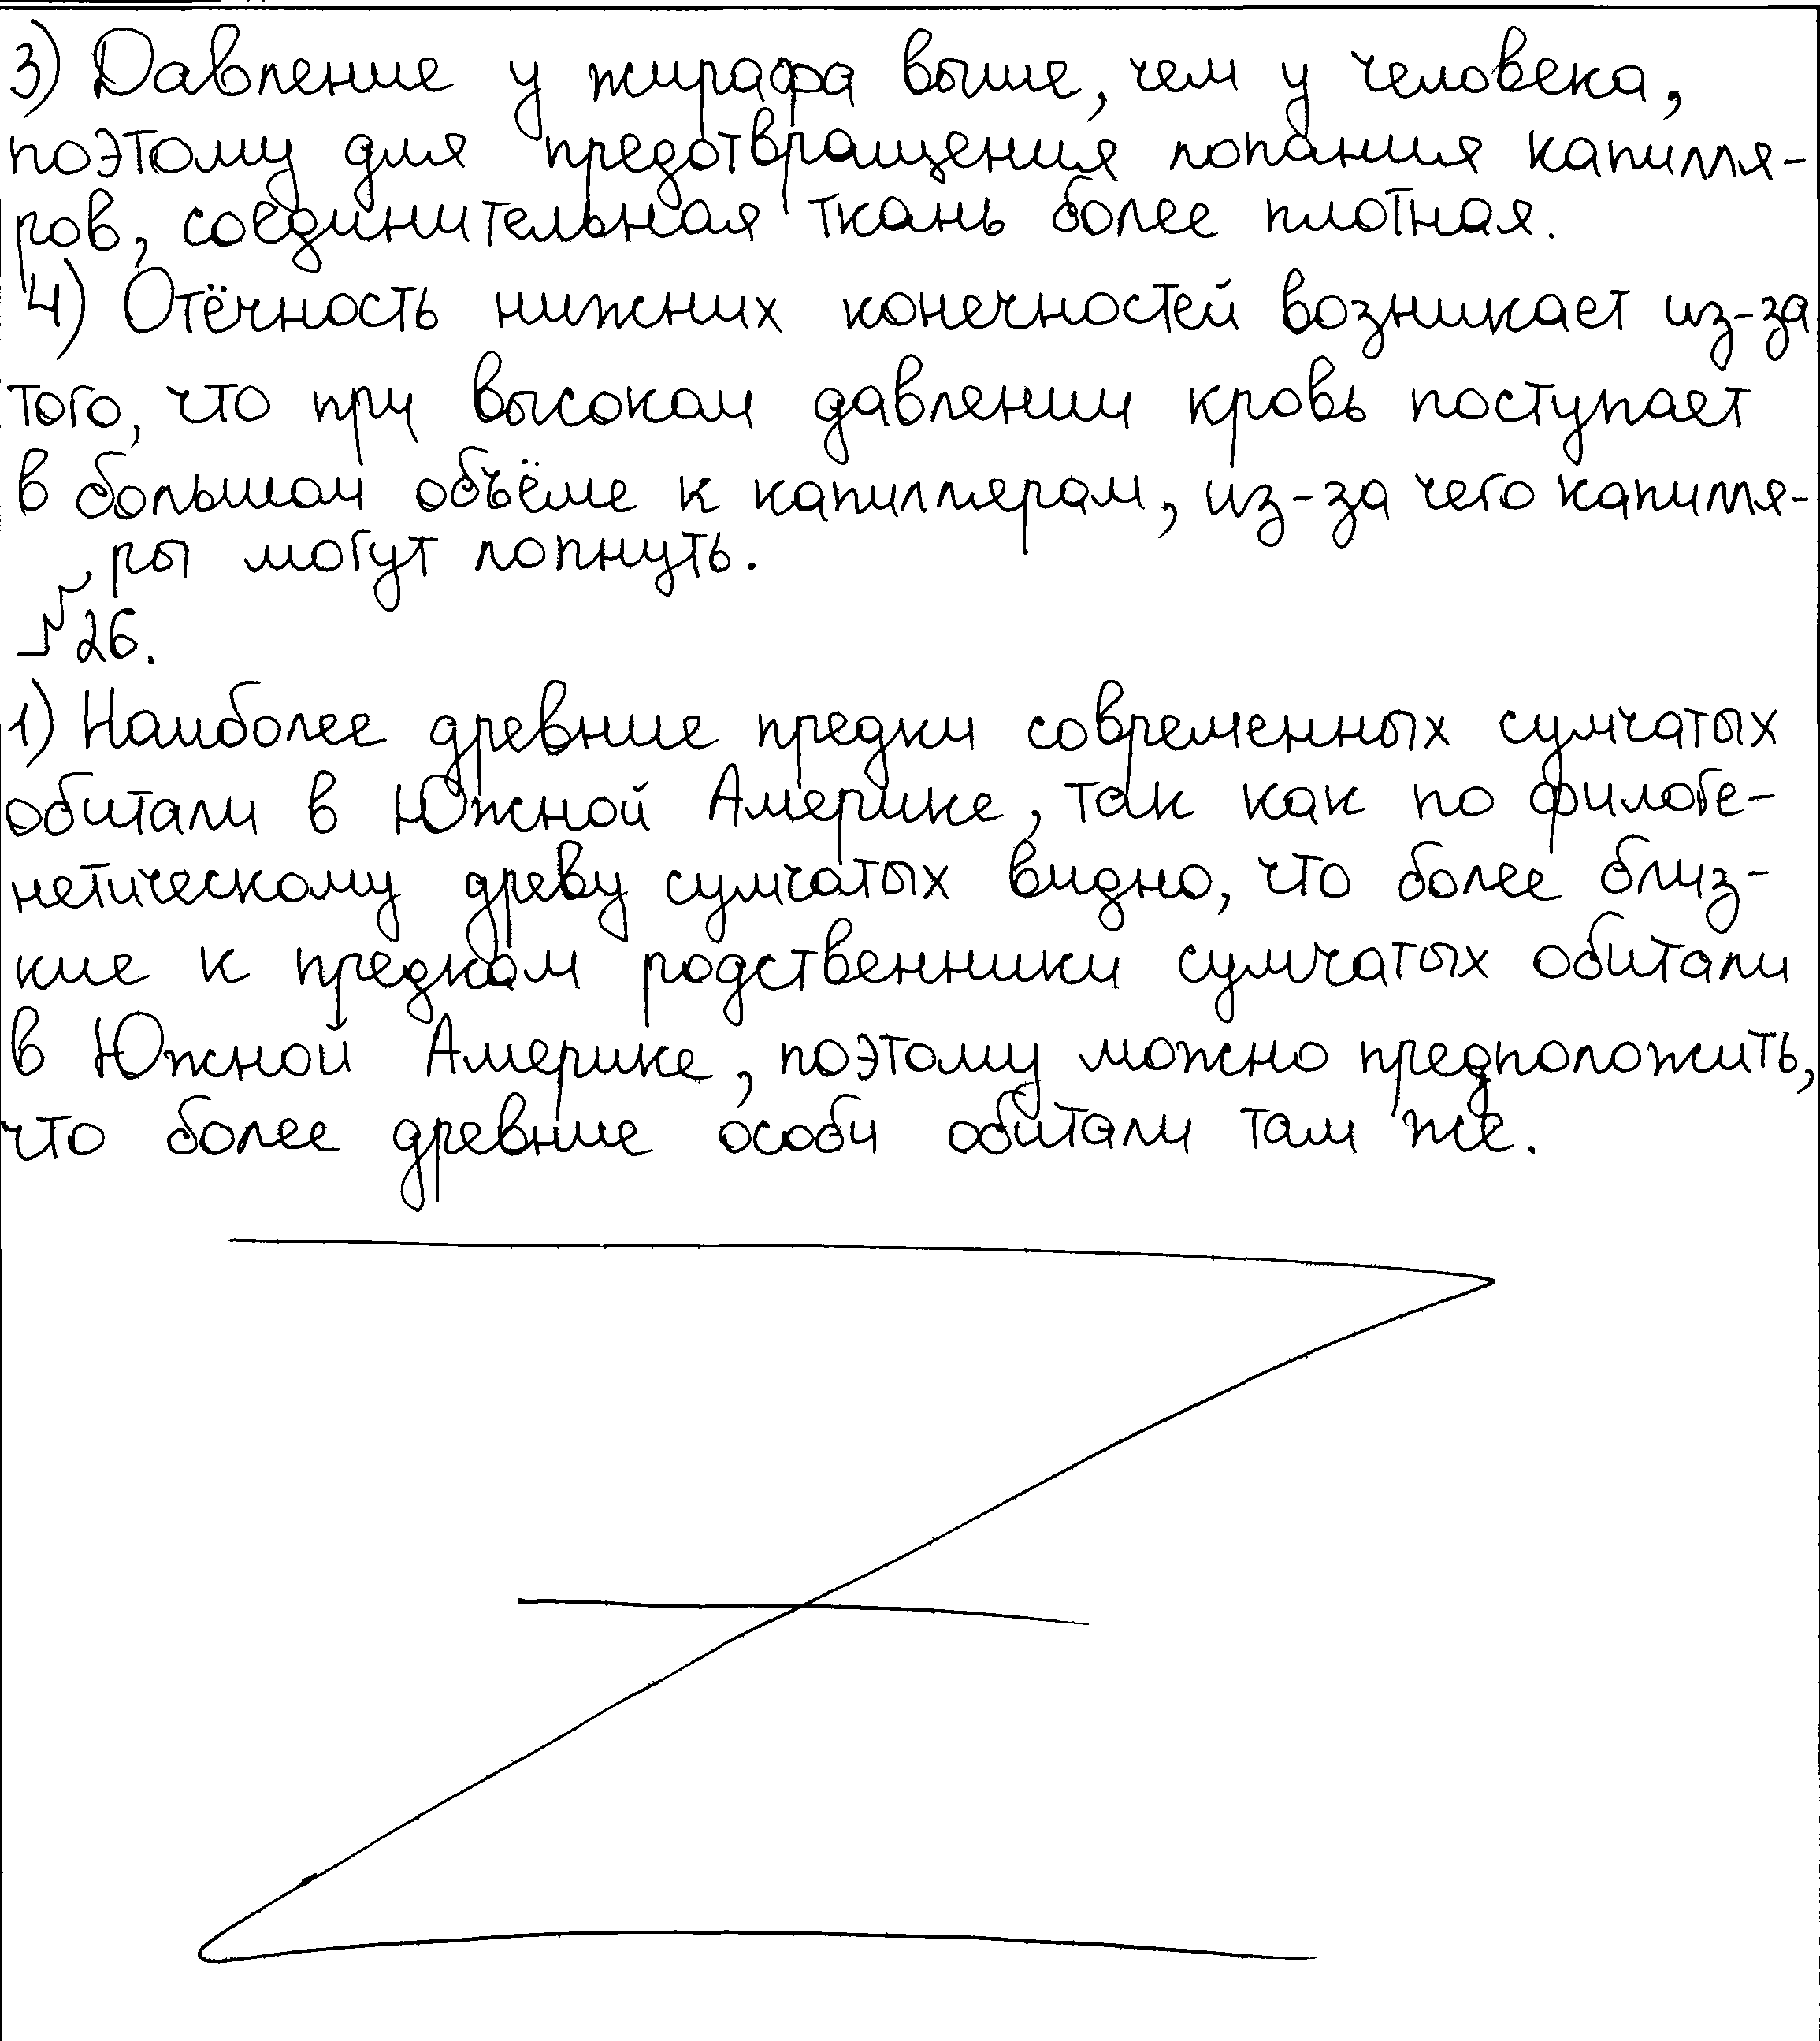 3) Давление у жирафа выше, чем у человека,
поэтому для предотвращения лопания капилля-
ров, соединительная ткань более плотная.
4) Отёчность нижних конечностей возникает из-за
того, что при высоком давлении кровь поступает
в большом объёме к капиллярам, из-за чего капилля-
ры могут лопнуть.
№26.
1) Наиболее древние предки современных сумчатых
обитали в Южной Америке, так как по филоге-
нетическому древу сумчатых видно, что более близ-
кие к предкам родственники сумчатых обитали
в Южной Америке, поэтому можно предположить,
что более древние особи обитали там же.